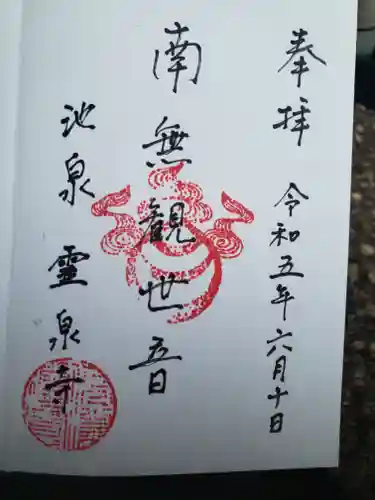 奉拝
令和五年六月十日
南無観世五日
池泉霊泉寺